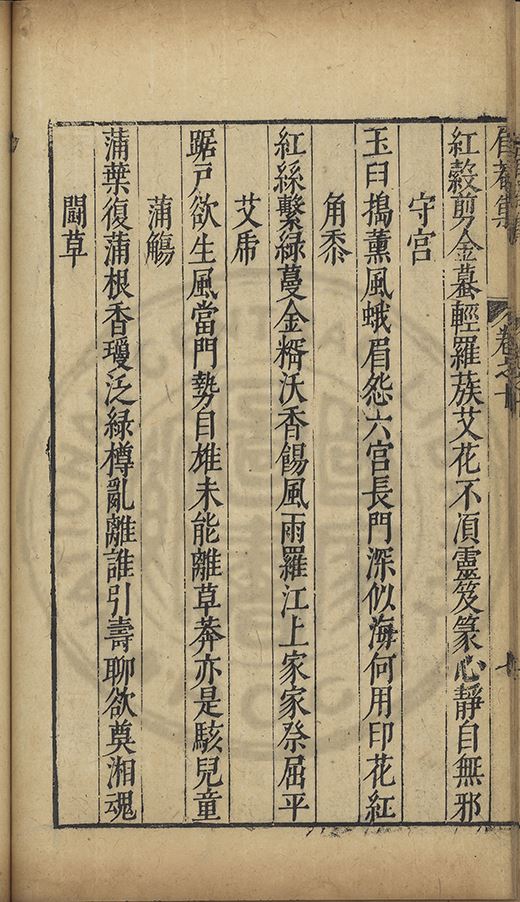 眉菴集 卷之十
紅縠剪金蟇輕羅蔟艾花不湏靈笈篆心靜自無邪
守宮
玉臼搗薰風蛾眉怨六宮長門深似海何用印花紅
角黍
紅絲繫綠蔓金糈沃香餳風雨羅江上家家祭屈平
艾虎
踞戸欲生風當門勢自雄未能離草莽亦是駭兒童
蒲觴
蒲葉復蒲根香瓊泛綠樽亂離誰引壽聊欲奠湘魂
鬭草